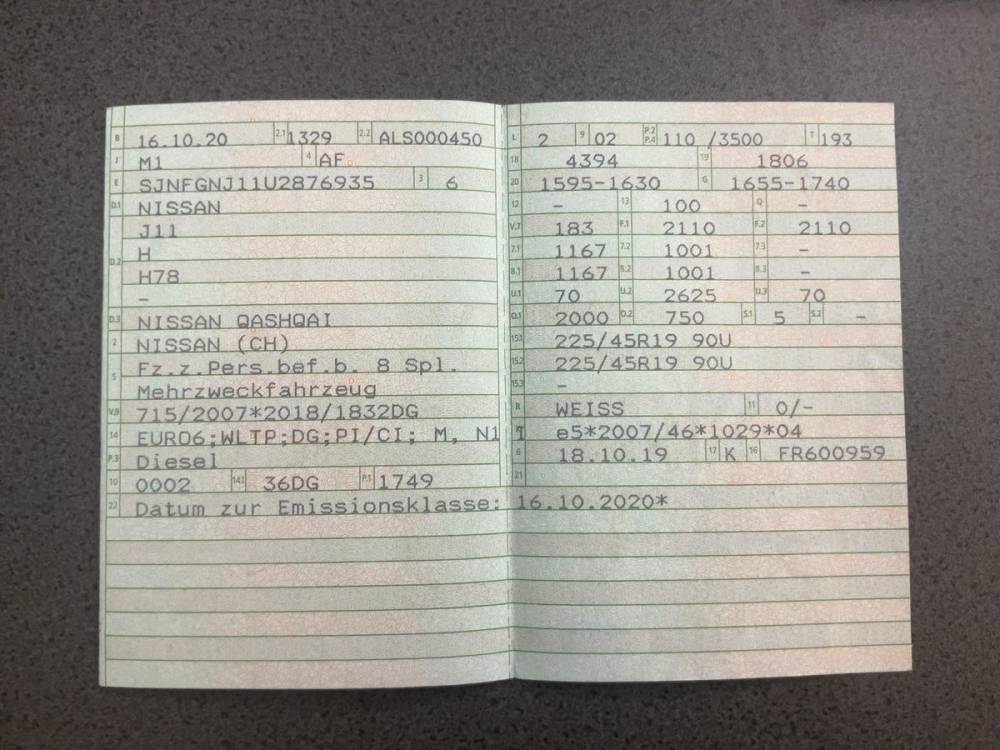 B 16.10.20 2.1 1329 2.2 ALS000450
J M1 4 AF
E SJNFGNJ11U2876935 3 6
D.1 NISSAN
J11
D.2 H
H78
–
D.3 NISSAN QASHQAI
2 NISSAN (CH)
5 Fz.z.Pers.bef.b. 8 Spl.
Mehrzweckfahrzeug
V.9 715/2007*2018/1832DG
14 EURO6;WLTP;DG;PI/CI; M, N1
P.3 Diesel
10 0002 14.1 36DG P.1 1749
22 Datum zur Emissionsklasse: 16.10.2020*
L 2 9 02 P.2 P.4 110 /3500 T 193
18 4394 19 1806
20 1595-1630 G 1655-1740
12 – 13 100 Q –
V.7 183 F.1 2110 F.2 2110
7.1 1167 7.2 1001 7.3 –
8.1 1167 8.2 1001 8.3 –
U.1 70 U.2 2625 U.3 70
O.1 2000 O.2 750 S.1 5 S.2 –
15.1 225/45R19 90U
15.2 225/45R19 90U
15.3 –
R WEISS 11 0/-
e5*2007/46*1029*04
6 18.10.19 17 K 16 FR600959
21